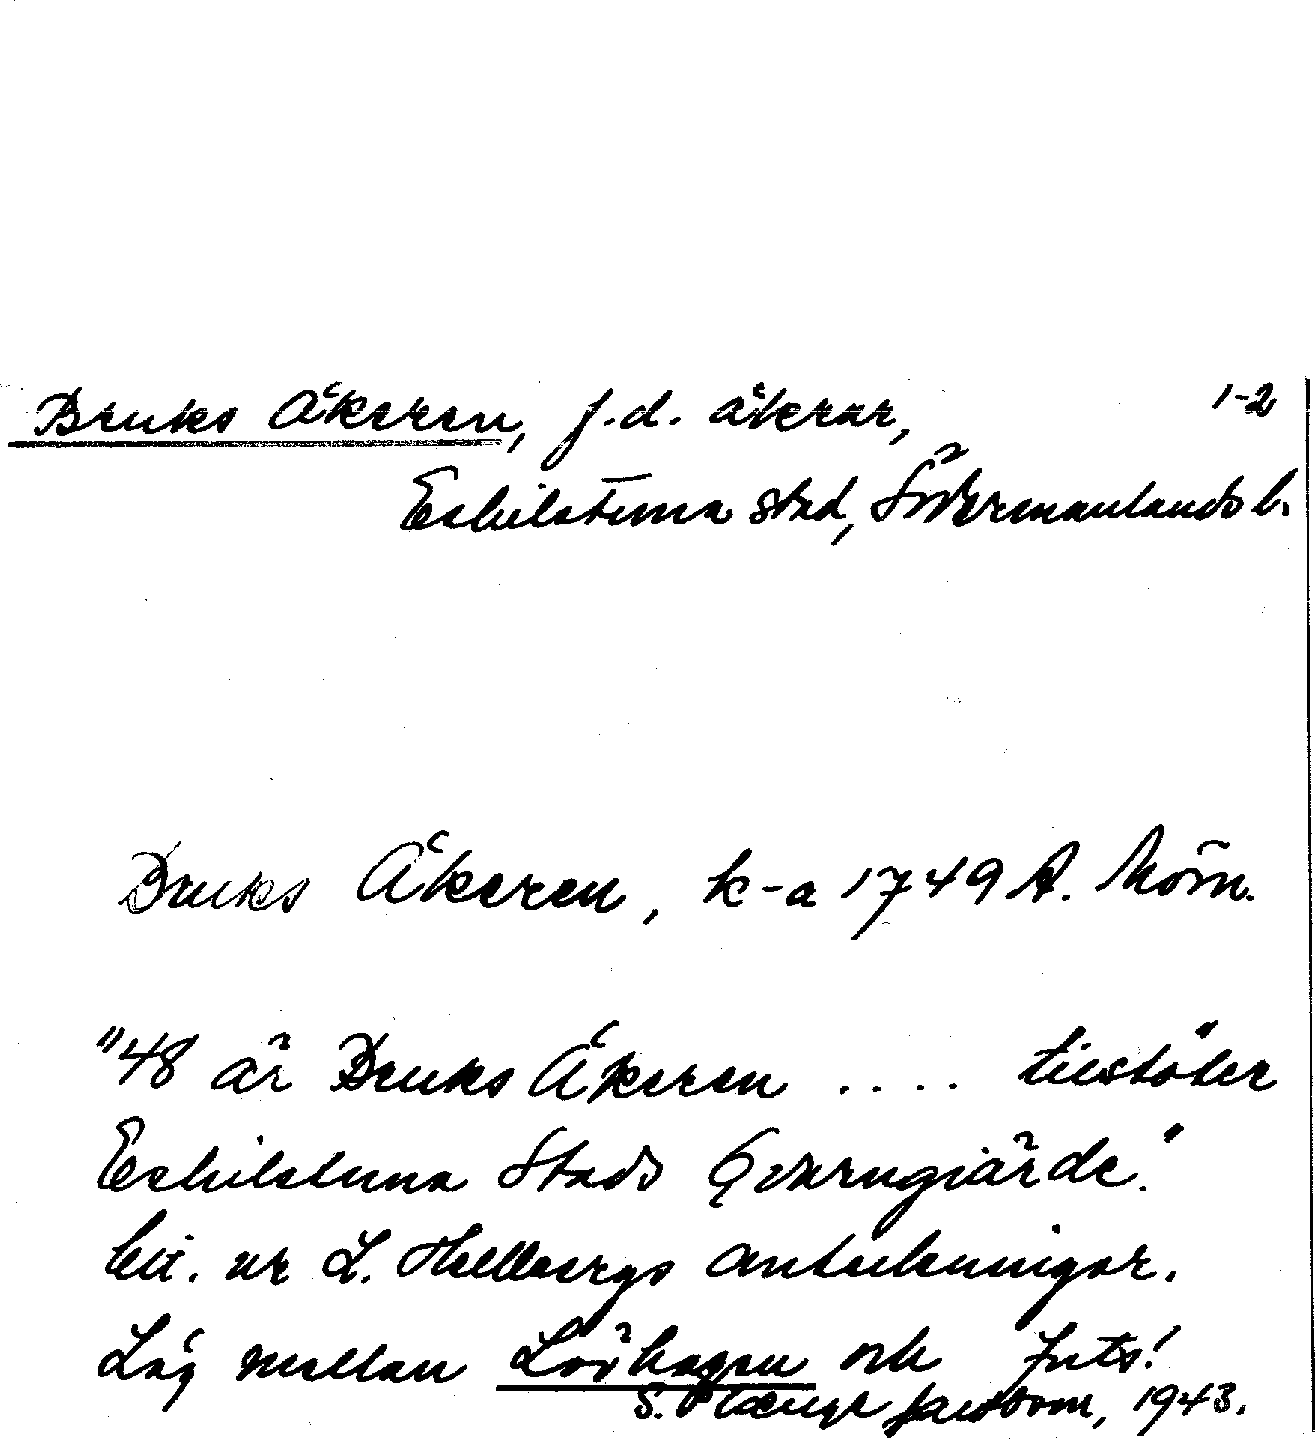 Bruks Åkeren, f.d. åkrar, 1-2
Eskilstuna stad, Södermanlands l.
Bruks Åkeren, k-a 1749 A. Mörn.
"48 är Bruks Åkeren .... tilstöter
Eskilstuna Stads Qvarngiärde."
Cit. ur L. Hellbergs anteckningar.
Låg mellan Lövhagen och
S. Jacobsom, 1943.